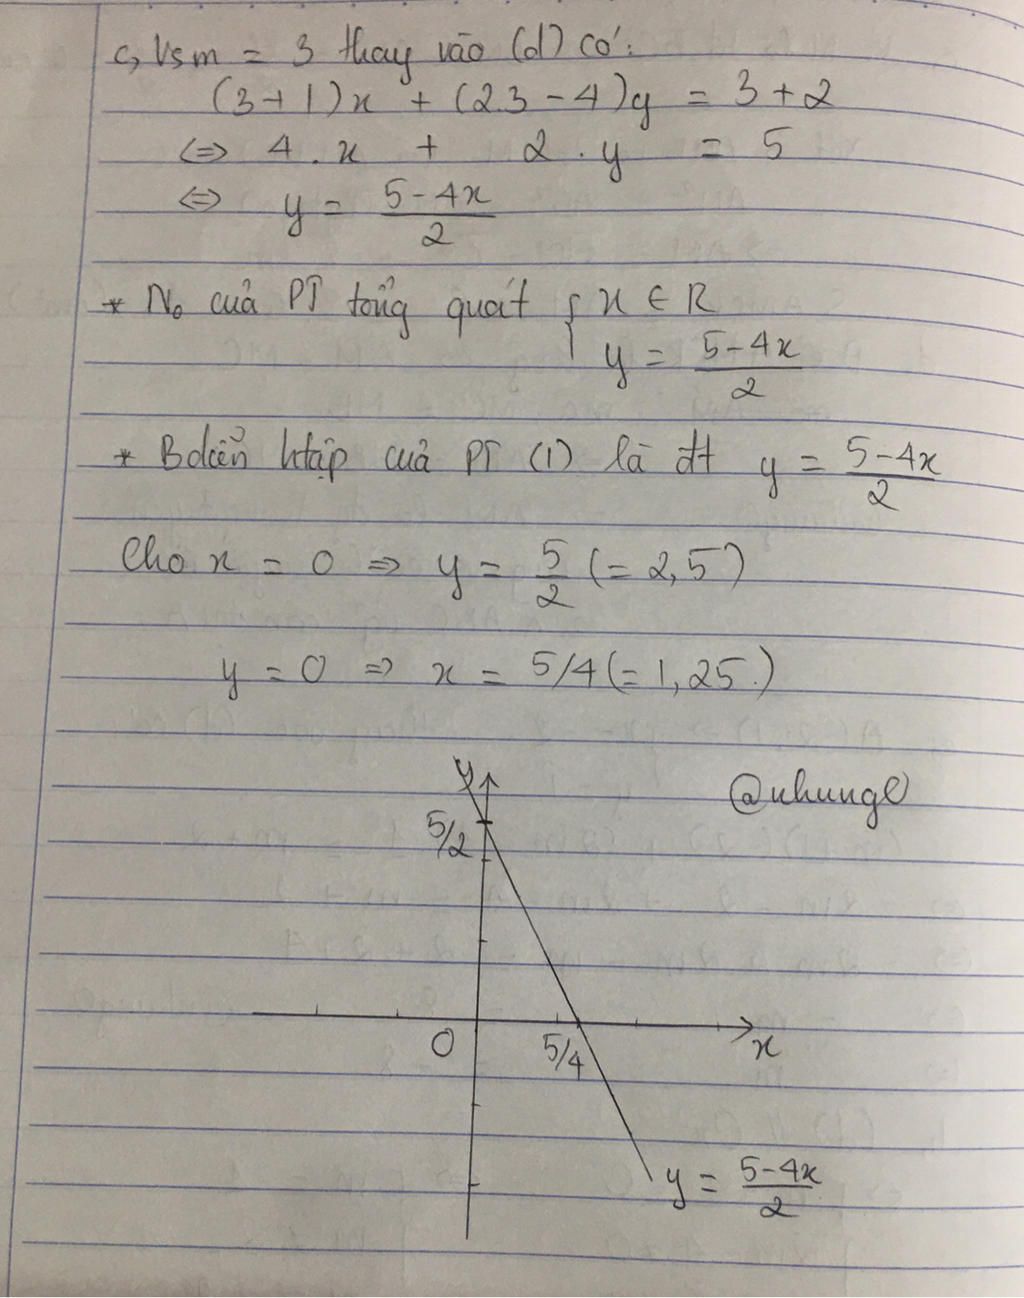 c, Vs m = 3 thay vào (d) có:
(3+1)x + (2.3-4)y = 3+2
<=> 4.x + 2.y = 5
<=> y = \frac{5-4x}{2}
* No của PT tổng quát { x ∈ R
y = \frac{5-4x}{2}
* Bdiễn htập của PT (1) là đt y = \frac{5-4x}{2}
Cho x = 0 => y = \frac{5}{2} (= 2,5)
y = 0 => x = 5/4 (= 1,25.)
y
@nhungl
5/2
0 5/4 x
y = \frac{5-4x}{2}